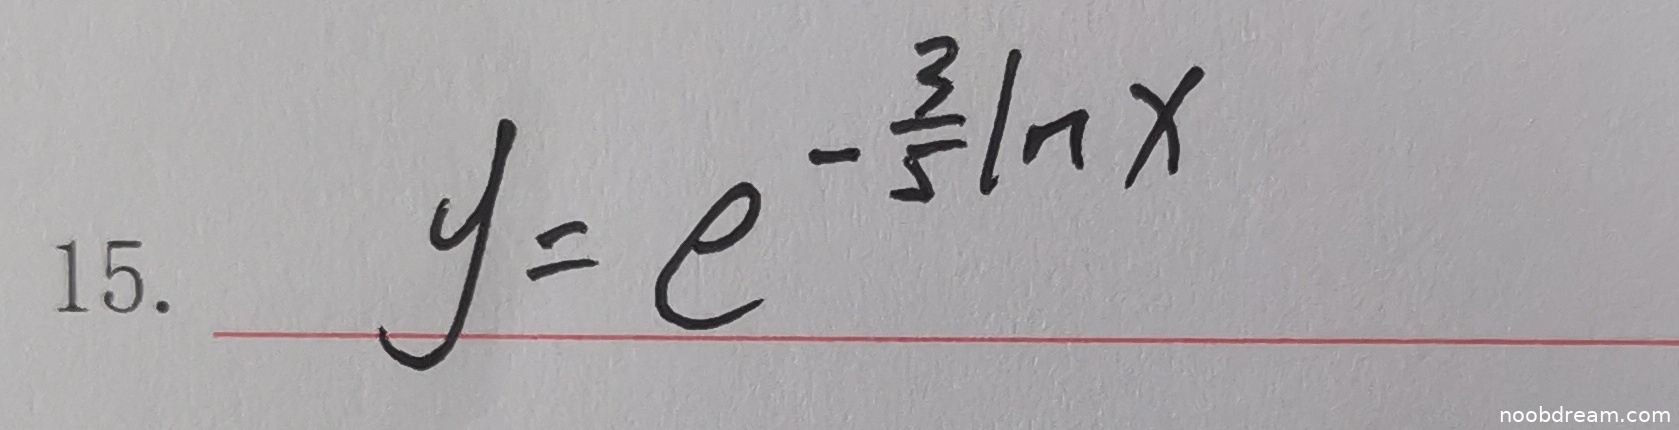 15. y = e^{-\frac{3}{5} ln x}
noobdream.com